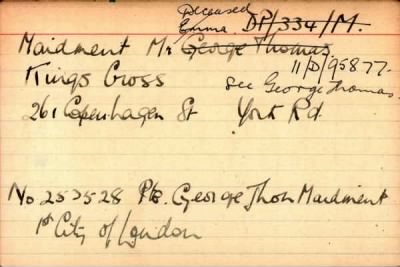 Deceased
Emma. DP/334/M.
Maidment Mr George Thomas
11/D/95877.
Kings Cross see George Thomas.
261 Copenhagen St York Rd
No 252528 Pte. George Thos Maidment
1st City of London